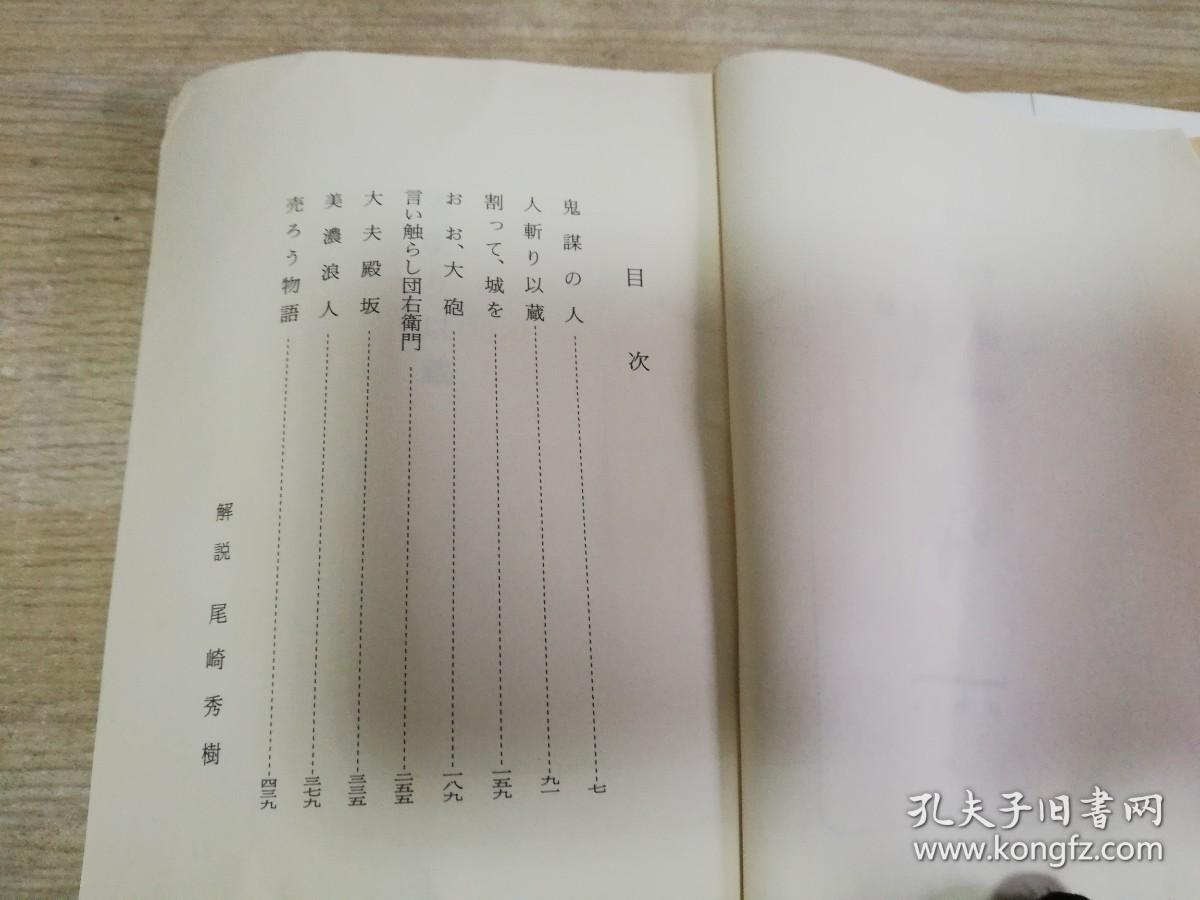 目次
鬼謀の人 七
人斬り以蔵 九一
割って、城を 一五九
おお、大砲 一八九
言い触らし団右衛門 二五五
大夫殿坂 三三五
美濃浪人 三七九
売ろう物語 四三九
解説 尾崎秀樹
孔夫子旧書网
www.kongfz.com